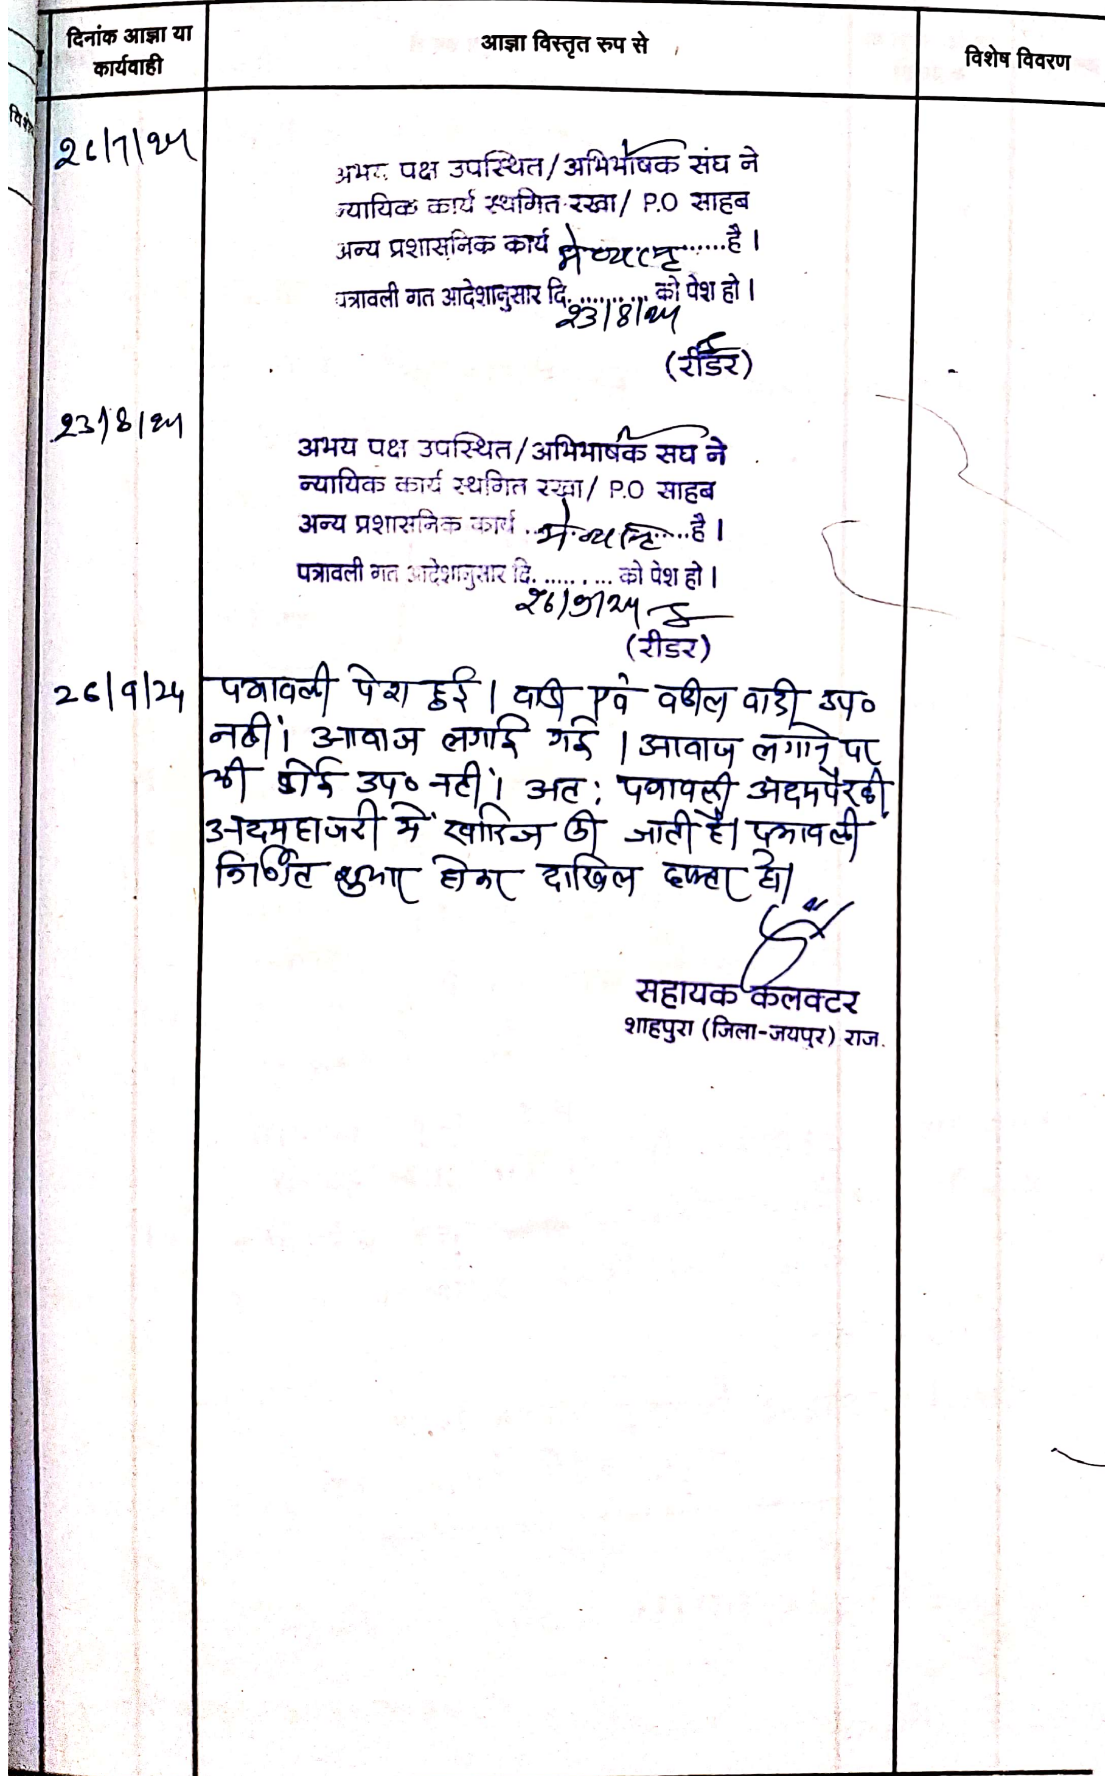 दिनांक आज्ञा या
कार्यवाही
आज्ञा विस्तृत रुप से
विशेष विवरण
26/7/24
अभय पक्ष उपस्थित/अभिभाषक संघ ने
न्यायिक कार्य स्थगित रखा/ P.O साहब
अन्य प्रशासनिक कार्य में व्यस्त ......है।
पत्रावली गत आदेशानुसार दि. .......... को पेश हो।
23/8/24
(रीडर)
23/8/24
अभय पक्ष उपस्थित/अभिभाषक संघ ने
न्यायिक कार्य स्थगित रखा/ P.O साहब
अन्य प्रशासनिक कार्य ..में व्यस्त.....है।
पत्रावली गत आदेशानुसार दि. ......... को पेश हो।
26/9/24
(रीडर)
26/9/24
पत्रावली पेश हुई। वादी एवं वकील वादी उप०
नहीं। आवाज लगाई गई। आवाज लगाने पर
भी कोई उप० नहीं। अत: पत्रावली अदमपैरवी
अदमहाजरी में खारिज की जाती है। पत्रावली
निर्णित शुमार होकर दाखिल दफ्तर हो।
सहायक कलक्टर
शाहपुरा (जिला-जयपुर) राज.